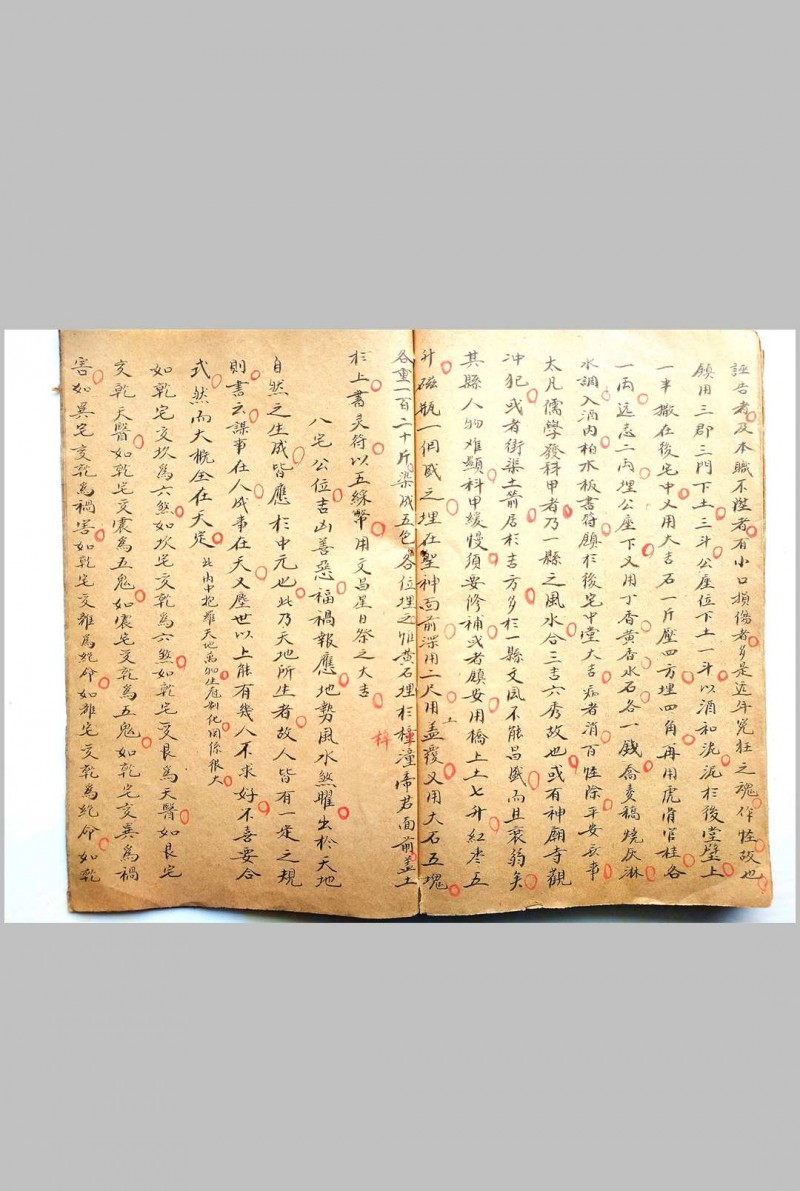 誣告者及本職不陞者有小口損傷者多是近年冤狂之魂作怪故也
鎮用三郡三門下土三斗公座位下土一斗以酒和泥泥於後堂壁上
一半撒在後宅中又用大吉石一斤壓四方埋四角再用虎骨官桂各
一両远志二両埋公座下又用丁香黄香水石各一錢喬麦稿燒灰淋
水調入酒内柏水板書符鎮於後宅中堂大吉病者消百怪除平安亥事
太凡儒學發科甲者乃一縣之風水合三吉六秀故也或有神廟寺觀
冲犯或者街渠土箭居於吉方多於一縣文風不能昌盛而且衰弱矣
其縣人物难顯科甲緩慢須要修補或者鎮安用橋上土七升紅枣五
升磁瓶一個盛之埋在聖神面前深用二尺用土盖覆又用大石五塊
各重一百二十斤染成五色各位埋之惟黄石埋於樟潼帝君面前盖土
梓
於上書灵符以五綵幣用文昌星日祭之大吉
八宅公位吉凶善惡福禍報應地勢風水煞曜出於天地
自然之生成皆應於中元也此乃天地所生者故人皆有一定之規
則書云謀事在人成事在天又塵世以上能有幾人不求好不喜要合
式然而大概全在天定此内中抱羅天地萬物生尅制化関係很大
如乾宅交坎為六煞如坎宅交乾為六煞如乾宅交艮為天醫如艮宅
交乾天醫如乾宅交震為五鬼如震宅交乾為五鬼如乾宅交巽為禍
害如巽宅交乾為禍害如乾宅交離為絶命如離宅交乾為絶命如乾